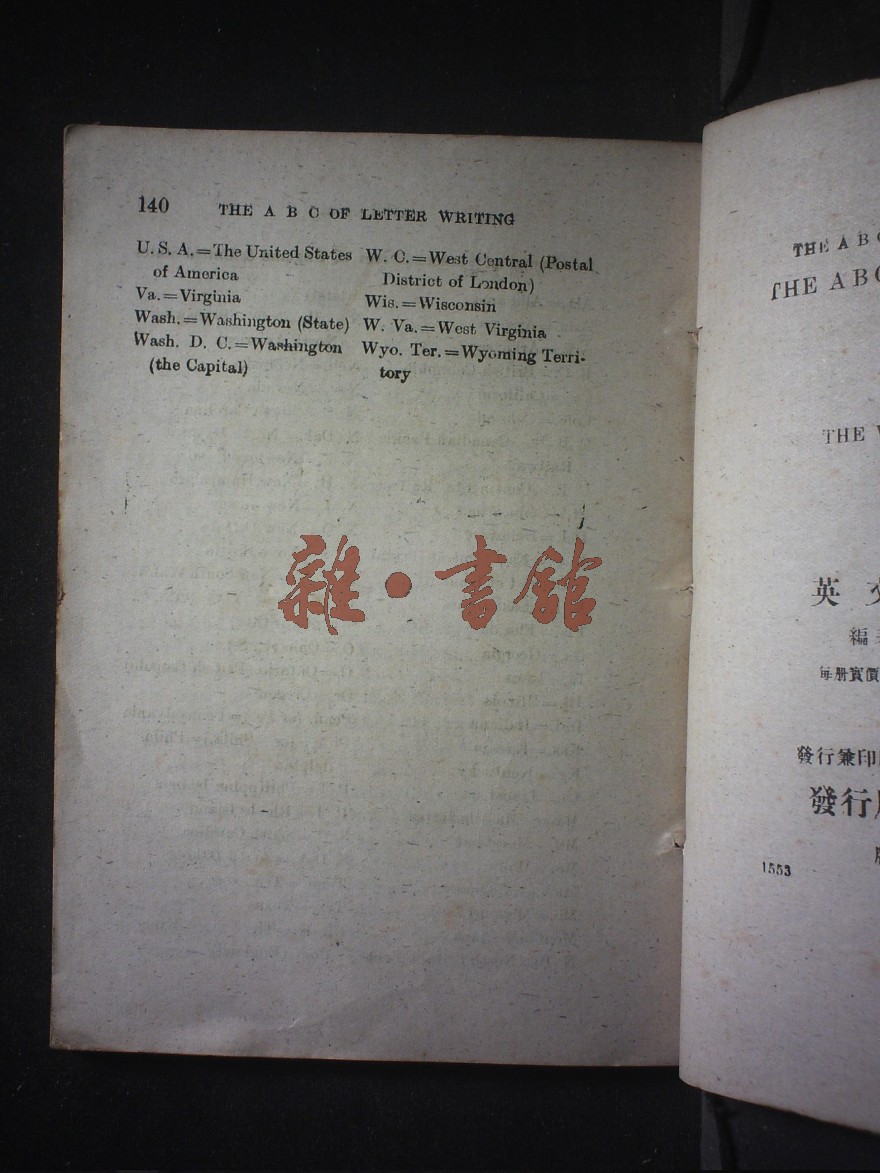 140 THE A B C OF LETTER WRITING
U. S. A.=The United States
of America
Va.=Virginia
Wash.=Washington (State)
Wash. D. C.=Washington
(the Capital)
W. C.=West Central (Postal
District of London)
Wis.=Wisconsin
W. Va.=West Virginia
Wyo. Ter.=Wyoming Terri-
tory
雜·書館
THE A B C
THE ABC
THE
英文
編
每册實價
發行兼印
發行
1553